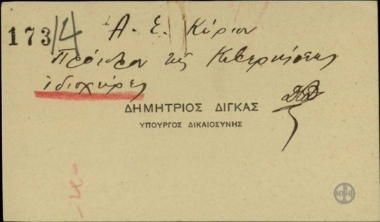 173/4
Α. Ε. Κύριον
Πρόεδρον της Κυβερνήσεως
ΔΗΜΗΤΡΙΟΣ ΔΙΓΚΑΣ
ΥΠΟΥΡΓΟΣ ΔΙΚΑΙΟΣΥΝΗΣ